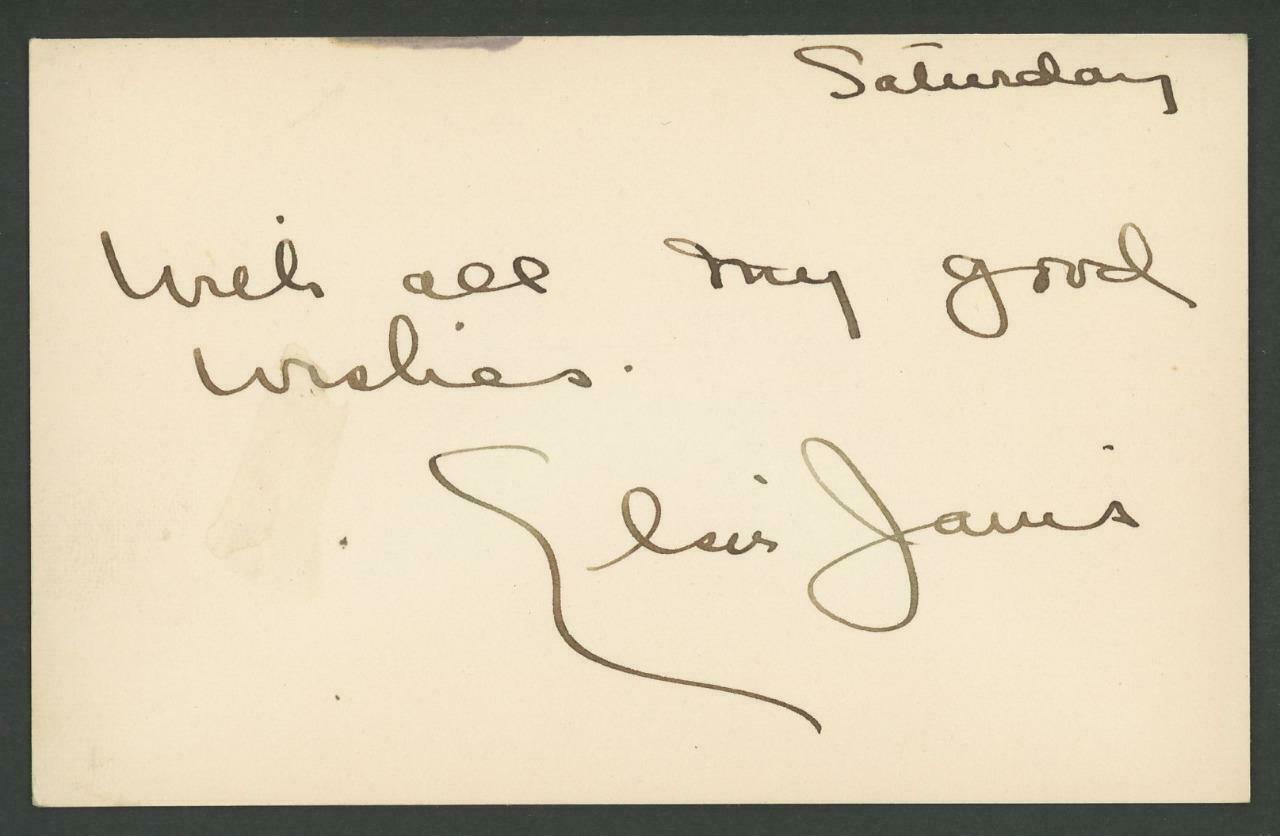 Saturday
With all my good
wishes.
Elsie Janis